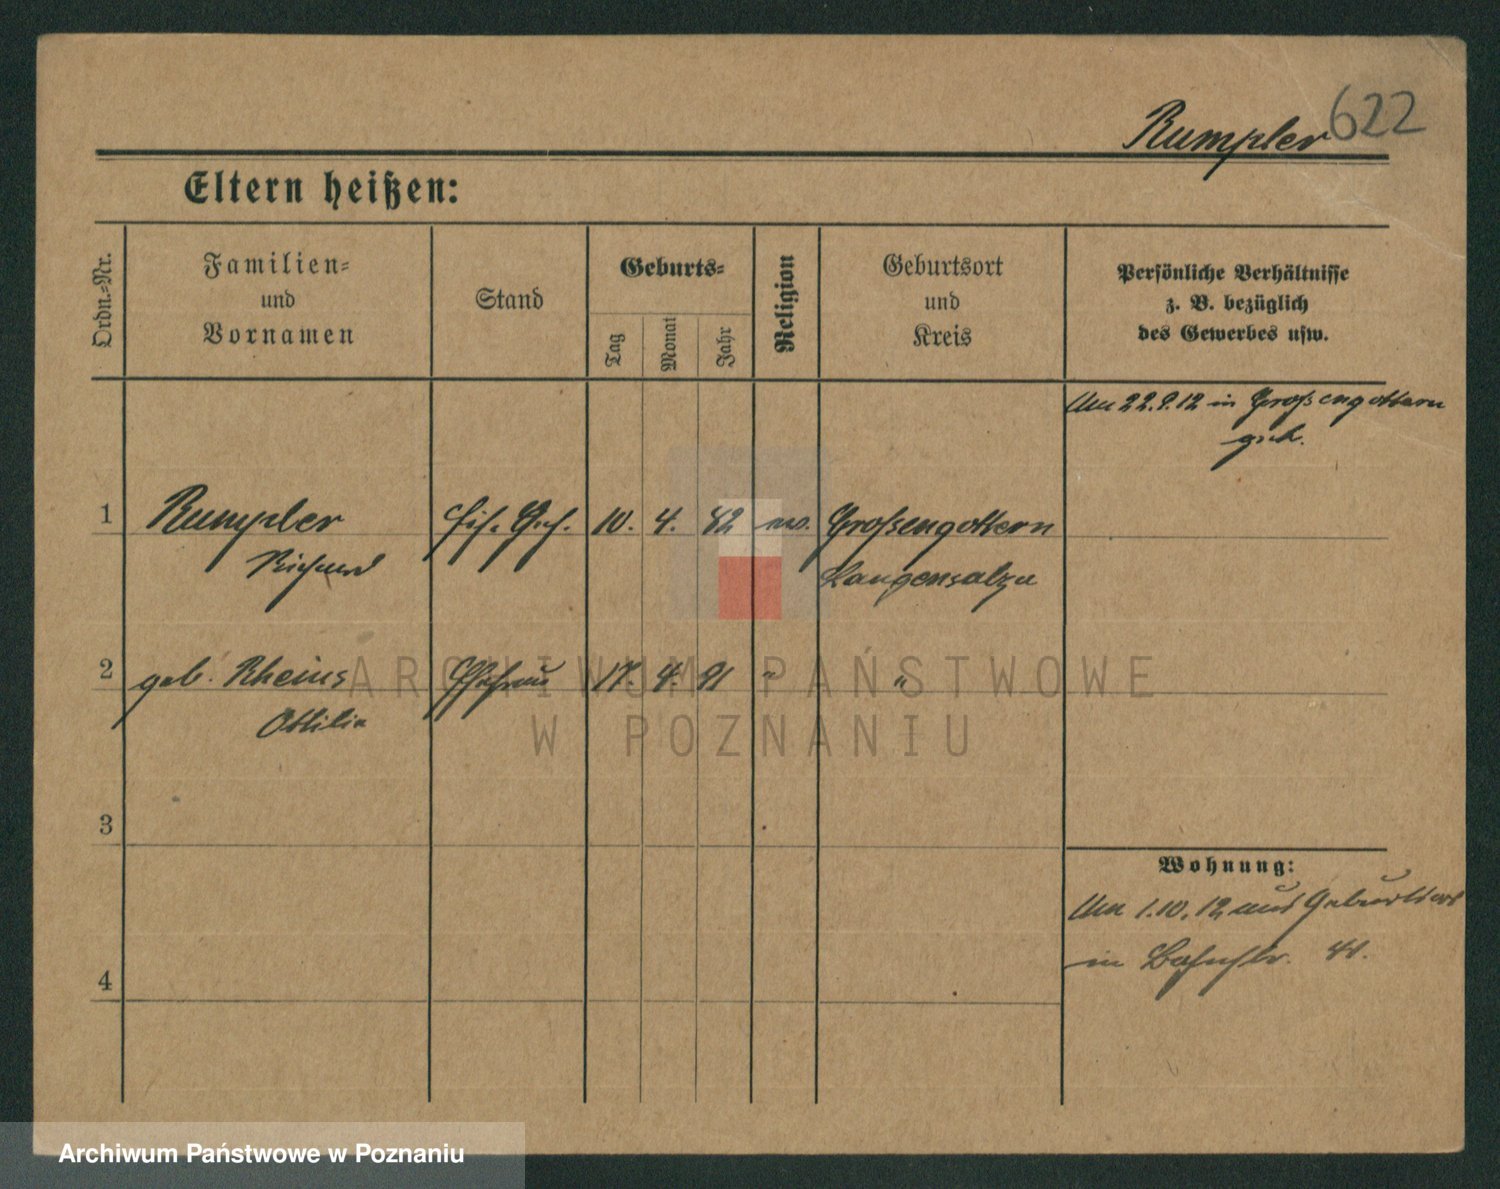 Rumpler 622
Eltern heißen:
Ordn.=Nr.
Familien=
und
Vornamen
Stand
Geburts=
Tag
Monat
Jahr
Religion
Geburtsort
und
Kreis
Persönliche Verhältnisse
z. B. bezüglich
des Gewerbes usw.
Am 22.9.12 in Großengottern
gesch.
1 Rumpler 10. 4. 82 ev. Großengottern
Richard Langensalza
2 geb. Rheins Ehefrau 17. 4. 91 " "
Ottilie
3
Wohnung:
Am 1.10.12 aus Geburtsort
in Bahnstr. 41.
4
ARCHIWUM PAŃSTWOWE
W POZNANIU
Archiwum Państwowe w Poznaniu